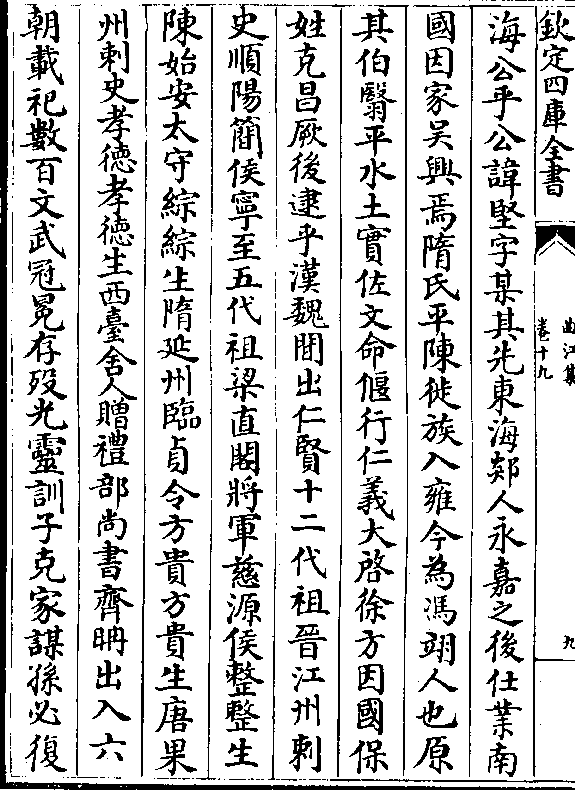 欽定四庫全書
曲江集
卷十九
九
海公乎公諱堅字某其先東海郯人永嘉之後仕業南
國因家吳興焉隋氏平陳徙族入雍今為馮翊人也原
其伯翳平水土實佐文命偃行仁義大啓徐方因國保
姓克昌厥後逮乎漢魏間出仁賢十二代祖晉江州刺
史順陽簡侯寧至五代祖梁直閣將軍慈源侯整整生
陳始安太守綜綜生隋延州臨貞令方貴方貴生唐果
州刺史孝德孝德生西臺舍人贈禮部尚書齊聃出入六
朝載祀數百文武冠冕存歿光靈訓子克家謀孫必復